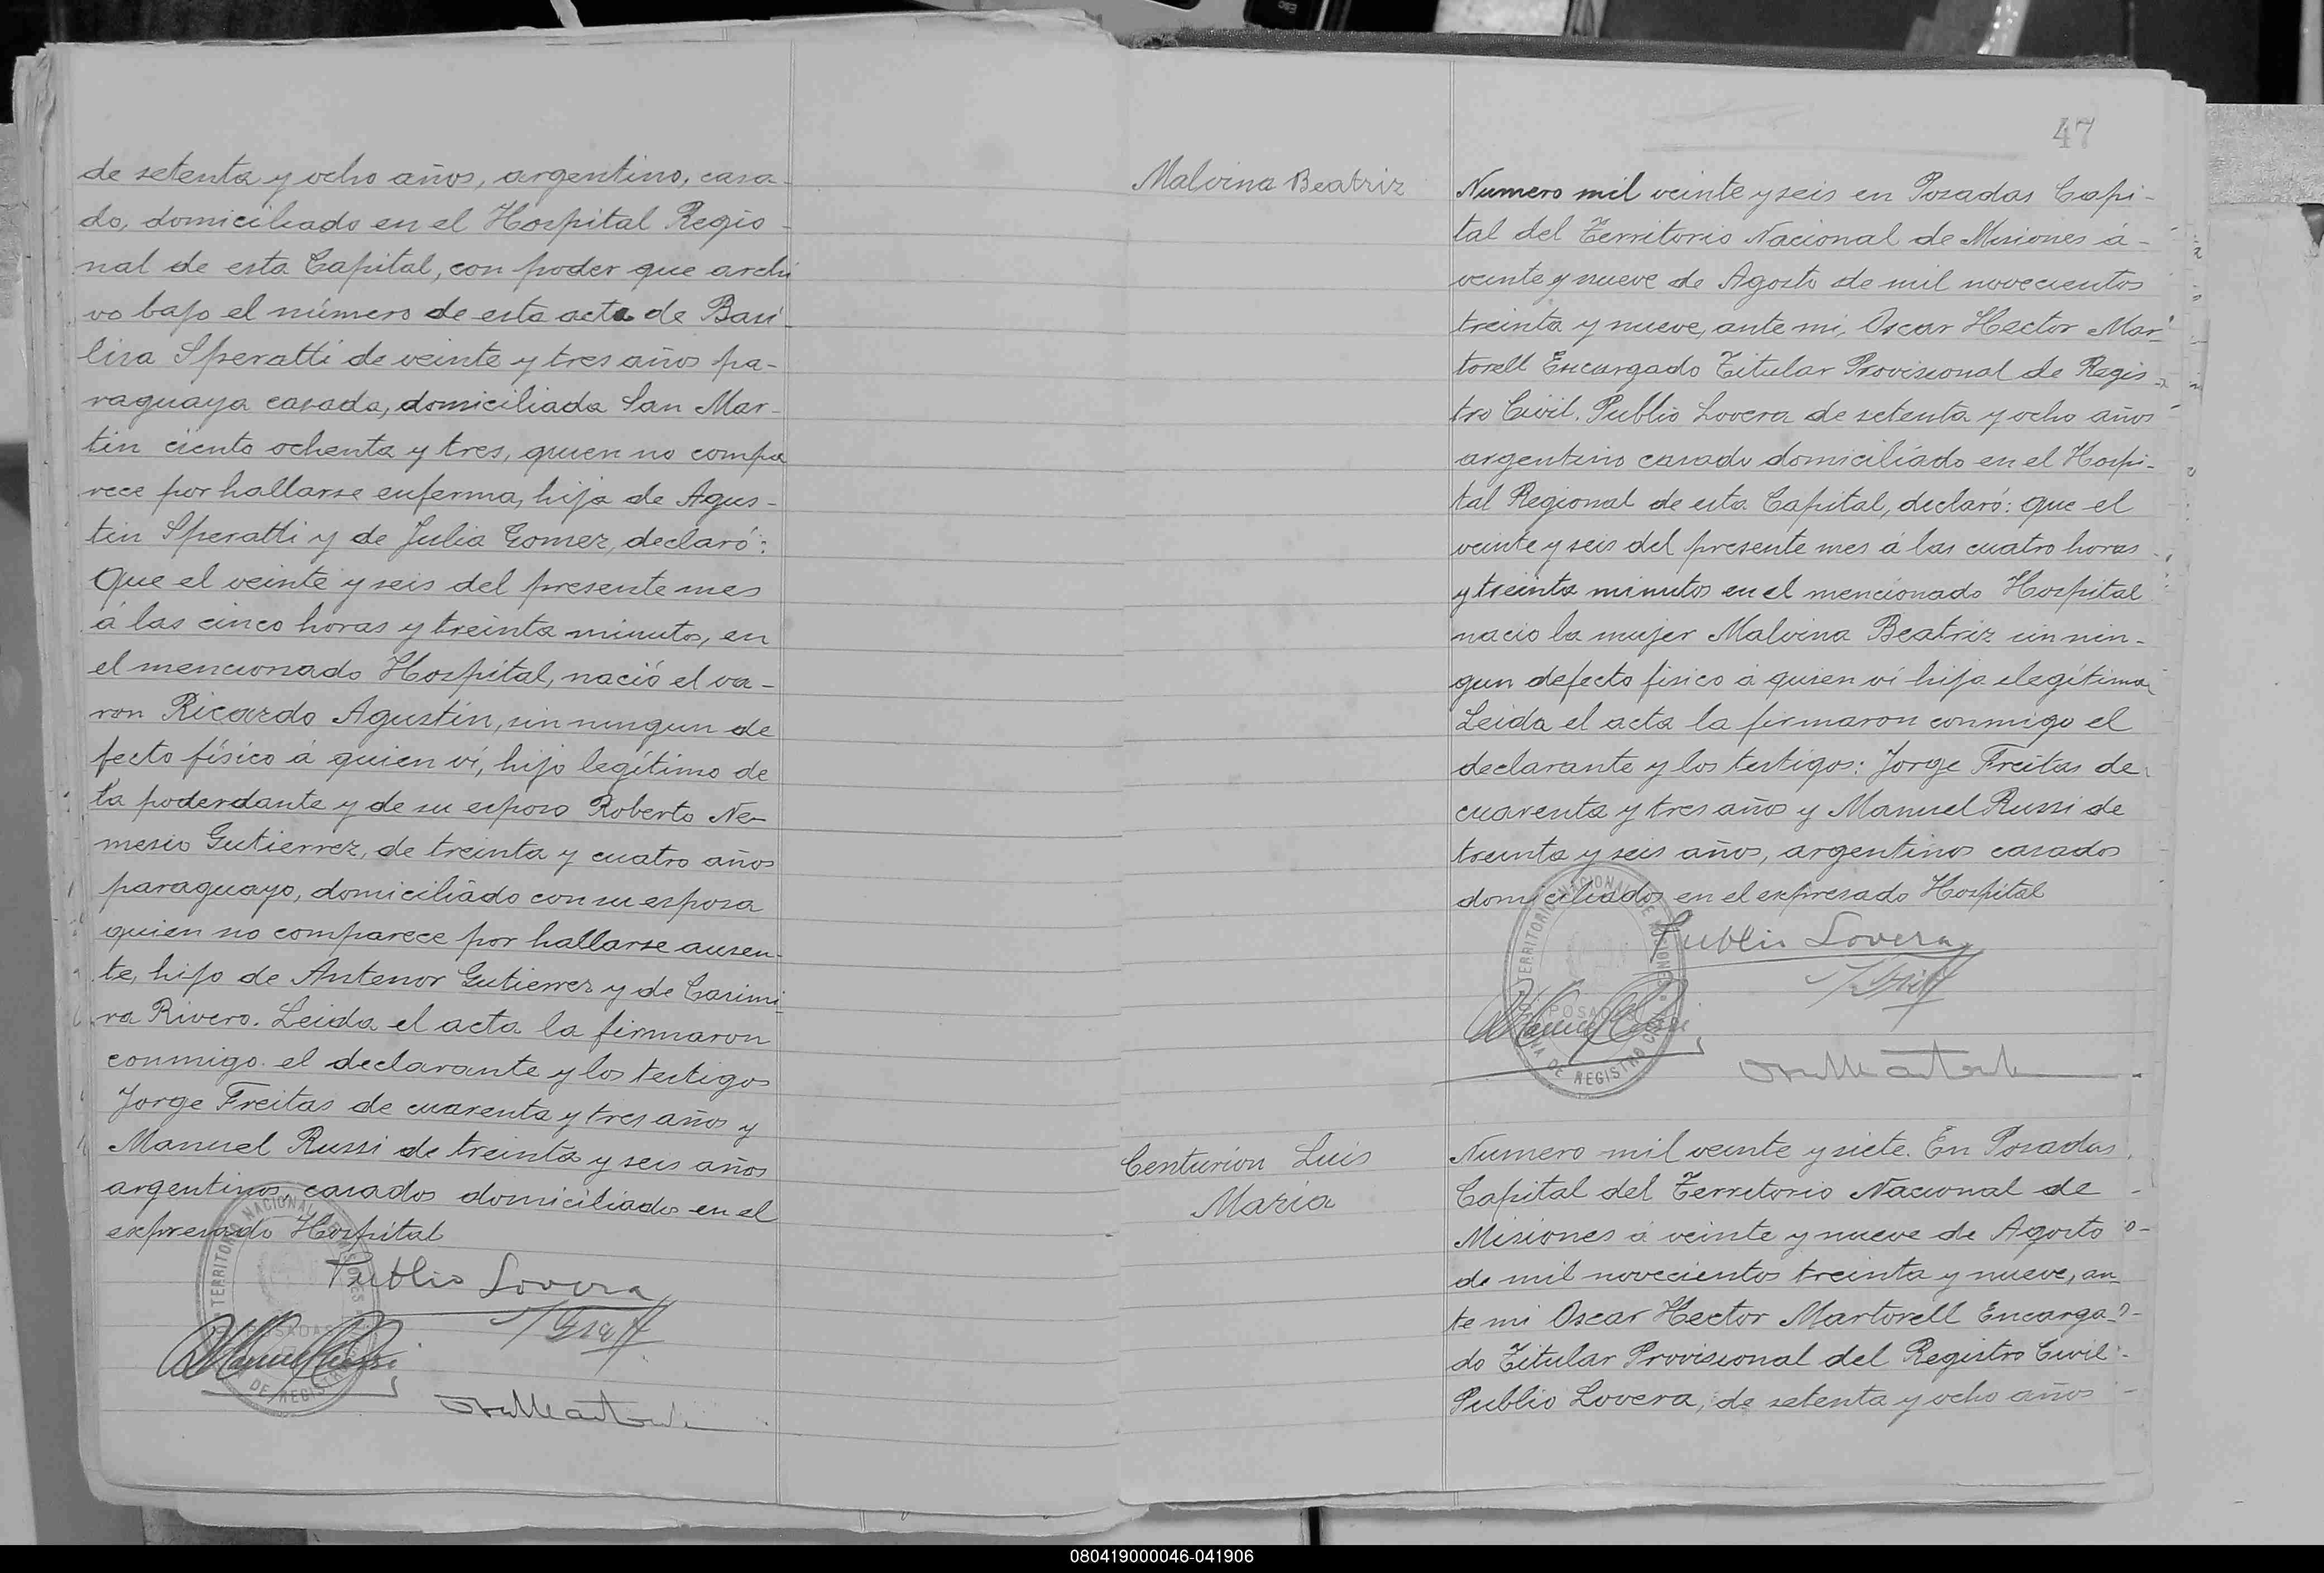 de setenta y ocho años, argentino, casa-
do, domiciliado en el Hospital Regio-
nal de esta Capital, con poder que archi
vo bajo el número de esta acta de Basi-
lisa Speratti de veinte y tres años pa-
raguaya casada, domiciliada San Mar-
tin ciento ochenta y tres, quien no compa
rece por hallarse enferma, hija de Agus-
tin Speratti y de Julia Gomez, declaró:
Que el veinte y seis del presente mes
á las cinco horas y treinta minutos, en
el mencionado Hospital, nació el va-
ron Ricardo Agustin, sin ningun de
fecto físico á quien ví, hijo legítimo de
la poderdante y de su esposo Roberto Ne-
mesio Gutierrez, de treinta y cuatro años
paraguayo, domiciliado con su esposa
quien no comparece por hallarse ausen-
te, hijo de Antenor Gutierrez y de Casimi-
ra Rivero. Leida el acta la firmaron
conmigo el declarante y los testigos
Jorge Freitas de cuarenta y tres años y
Manuel Russi de treinta y seis años
argentinos, casados domiciliados en el
expresado Hospital
TERRITORIO NACIONAL DE MISIONES
POSADAS
DE REGISTRO
Publio Lovera
Manuel Russi
47
Malvina Beatriz
Numero mil veinte y seis en Posadas Capi-
tal del Territorio Nacional de Misiones á
veinte y nueve de Agosto de mil novecientos
treinta y nueve, ante mi, Oscar Hector Mar-
torell Encargado Titular Provisional de Regis-
tro Civil. Publio Lovera de setenta y ocho años
argentino casado domiciliado en el Hospi-
tal Regional de esta Capital, declaró: que el
veinte y seis del presente mes á las cuatro horas
y treinta minutos en el mencionado Hospital
nacio la mujer Malvina Beatriz sin nin-
gun defecto fisico á quien ví hija ilegítima
Leida el acta la firmaron conmigo el
declarante y los testigos: Jorge Freitas de
cuarenta y tres años y Manuel Russi de
treinta y seis años, argentinos casados
domiciliados en el expresado Hospital
TERRITORIO NACIONAL DE MISIONES
POSADAS
OFICINA DE REGISTRO CIVIL
Publio Lovera
Manuel Russi
Centurion Luis
María
Numero mil veinte y siete. En Posadas
Capital del Territorio Nacional de
Misiones á veinte y nueve de Agosto
de mil novecientos treinta y nueve, an
te mi Oscar Hector Martorell Encarga-
do Titular Provisional del Registro Civil
Publio Lovera, de setenta y ocho años
080419000046-041906